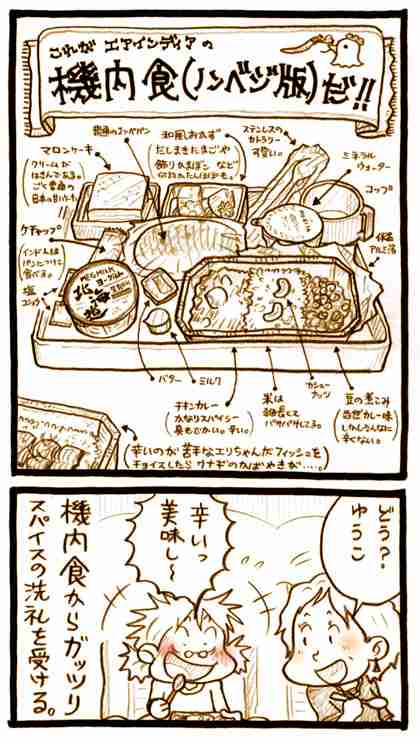 これが エアインディアの
機内食(ノンベジ版)だ!!
マロンケーキ
クリームが
はさんである。
ごく普通の
日本の甘いケーキ
普通のコッペパン
和風おかず
だしまきたまごや
飾りかまぼこ など
ステンレスの
カトラリー
可愛い。
ミネラル
ウォーター
コップ
アルミ箔
ケチャップ
インド人は
パンにつけて
食べる。
塩
コショウ
MEGMILK
ヨーグルト
北海道
バター
ミルク
チキンカレー
かなりスパイシー
鼻もでかい。辛い。
米は
細長くて
パサパサしてる。
カシュー
ナッツ
豆の煮こみ
当然カレー味
しかしそんなに
辛くない。
(辛いのが苦手なエリちゃんがフィッシュを
チョイスしたらウナギのかばやきが……。)
どう?
ゆうこ
辛いっ
美味し〜
機内食からガッツリ
スパイスの洗礼を受ける。